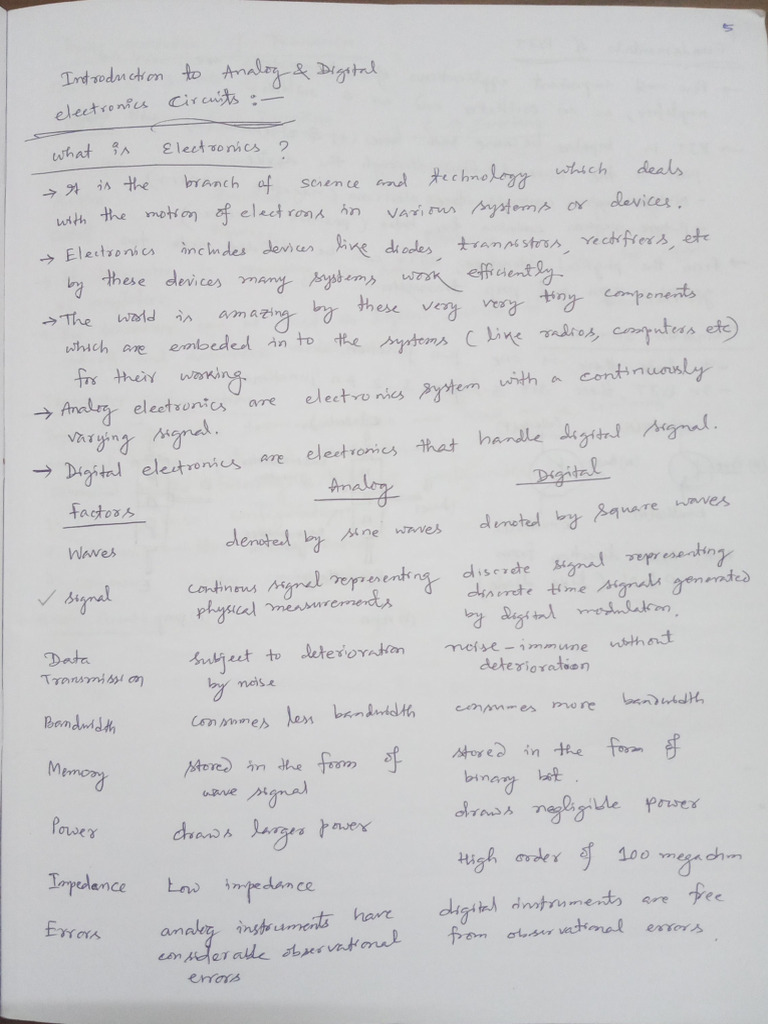 5
Introduction to Analog & Digital
electronics Circuits :—
what is Electronics ?
→ It is the branch of science and technology which deals
with the motion of electrons in various systems or devices.
→ Electronics includes devices like diodes, transistors, rectifiers, etc
by these devices many systems work efficiently
→ The world is amazing by these very very tiny components
which are embeded in to the systems ( like radios, computers etc)
for their working.
→ Analog electronics are electronics system with a continuously
varying signal.
→ Digital electronics are electronics that handle digital signal.
Factors Analog Digital
Waves denoted by sine waves denoted by square waves
✓ signal continous signal representing discrete signal representing
physical measurements discrete time signals generated
by digital modulation.
Data subject to deterioration noise-immune without
Transmission by noise deterioration
Bandwidth consumes less bandwidth consumes more bandwidth
Memory stored in the form of stored in the form of
wave signal binary bit.
Power draws larger power draws negligible power
Impedance Low impedance High order of 100 megaohm
Errors analog instruments have digital instruments are free
considerable observational from observational errors.
errors